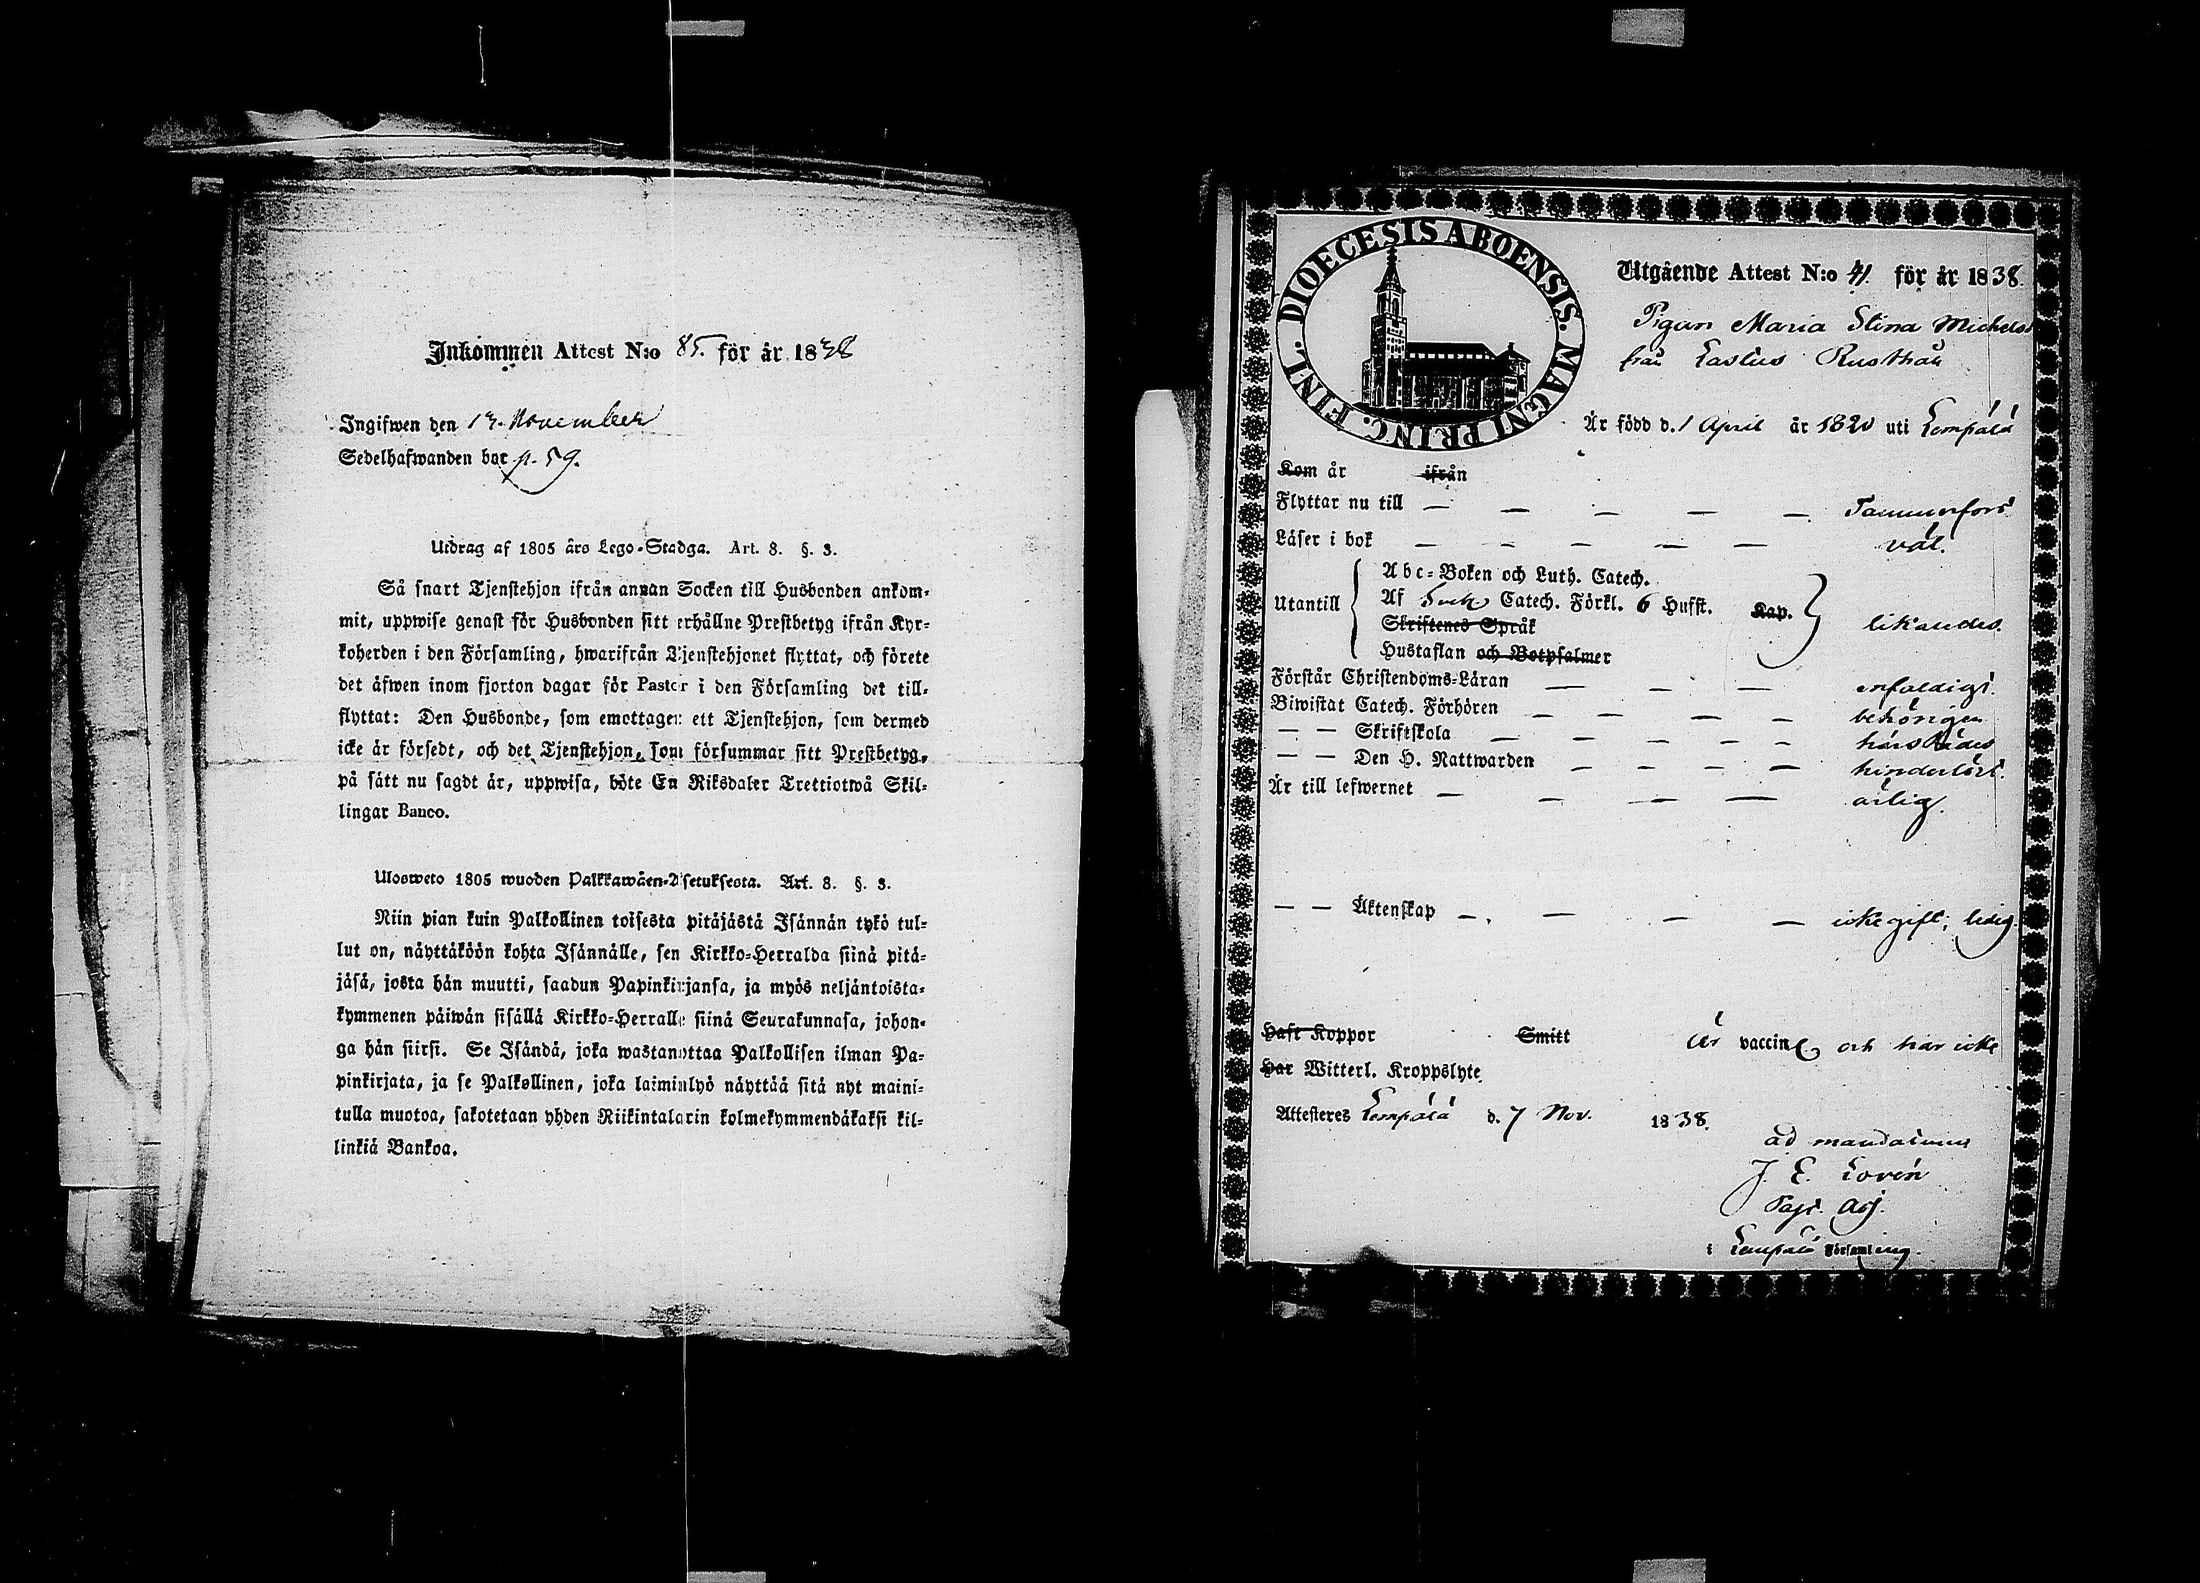 Inkommen Attest N:o 85. för år 1838
Ingifwen den 13. November
Sedelhafwanden bor p. 59.
Utdrag af 1805 års Lego-Stadga. Art. 8. §. 3.
Så snart Tjenstehjon ifrån annan Socken till Husbonden ankom-
mit, uppwise genast för Husbonden sitt erhållne Prestbetyg ifrån Kyr-
koherden i den Församling, hwarifrån Tjenstehjonet flyttat, och förete
det äfwen inom fjorton dagar för Pastor i den Församling det till-
flyttat: Den Husbonde, som emottager ett Tjenstehjon, som dermed
icke är försedt, och det Tjenstehjon, som försummar sitt Prestbetyg,
på sätt nu sagdt är, uppwisa, böte En Riksdaler Trettiotwå Skil-
lingar Banco.
Ulosweto 1805 wuoden Palkkawäen-Asetuksesta. Art. 8. §. 3.
Niin pian kuin Palkollinen toisesta pitäjästä Isännän tykö tul-
lut on, näyttäköön kohta Isännälle, sen Kirkko-Herralda siinä pitä-
jäsä, josta hän muutti, saadun Papinkirjansa, ja myös neljäntoista-
kymmenen päiwän sisällä Kirkko-Herralle siinä Seurakunnasa, johon-
ga hän siirsi. Se Isändä, joka wastanottaa Palkollisen ilman Pa-
pinkirjata, ja se Palkollinen, joka laiminlyö näyttää sitä nyt maini-
tulla muotoa, sakotetaan yhden Riikintalarin kolmekymmendäkaksi kil-
linkiä Bankoa.
DIOECESIS ABOENSIS. MAGNI PRINC. FINL.
Utgående Attest N:o 41. för år 1838.
Pigan Maria Stina Michelsd
från Lastus Rusthåll
Är född d. 1 April år 1820 uti Lempälä
Kom år ifrån
Flyttar nu till — — — — — Tammerfors
Läser i bok — — — — — väl.
Abc-Boken och Luth. Catech.
Utantill Af Catech. Förkl. 6 Hufst. Kap. likaledes.
Skriftenes Språk
Hustaflan och Botpsalmer
Förstår Christendoms-Läran — — — enfaldigt.
Biwistat Catech. Förhören — — — — behörigen
— — Skriftskola — — — — — härstädes
— — Den H. Nattwarden — — — — hinderlöst.
Är till lefwernet — — — — ärlig.
— — Äktenskap — — — — icke gift; ledig.
Haft Koppor Smitt Är vaccin. och har icke
Har Witterl. Kroppslyte
Attesteres Lempälä d. 7 Nov. 1838.
ad mandatum
J. E. Lovén
Past. Adj.
i Lempälä Församling.